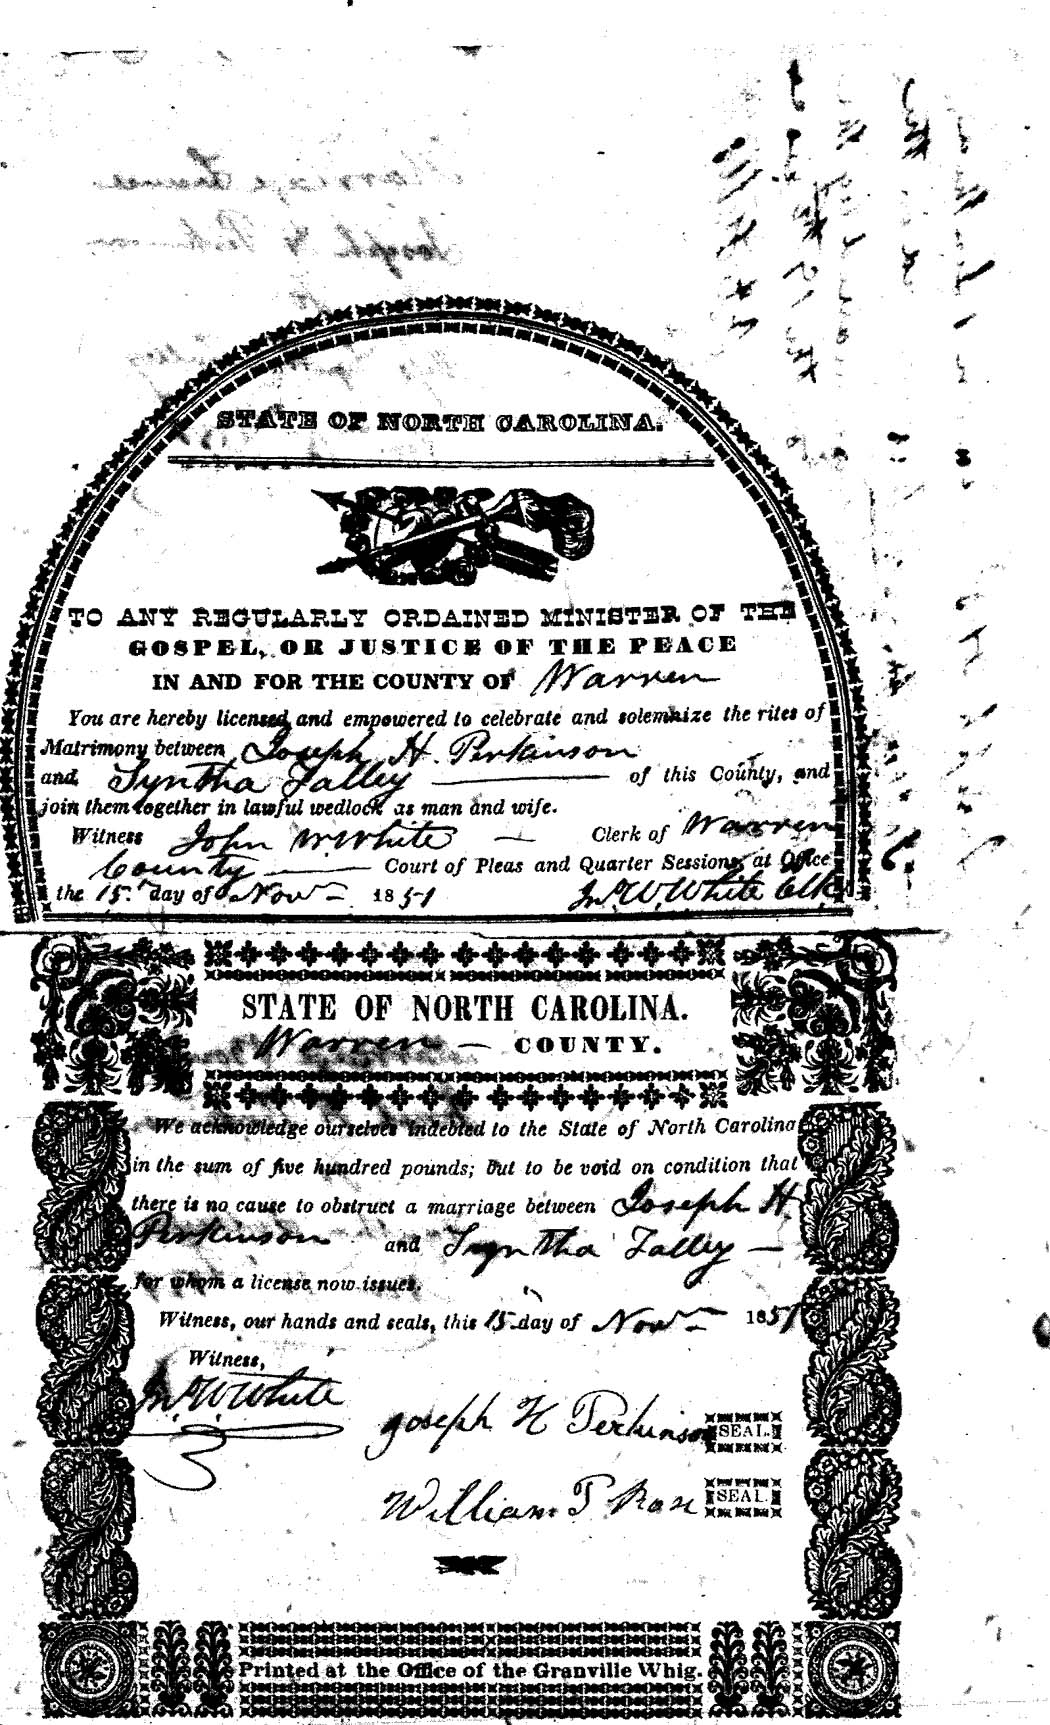 Marriage License
Joseph H Perkinson
STATE OF NORTH CAROLINA.
TO ANY REGULARLY ORDAINED MINISTER OF THE
GOSPEL, OR JUSTICE OF THE PEACE
IN AND FOR THE COUNTY OF Warren
You are hereby licensed and empowered to celebrate and solemnize the rites of
Matrimony between Joseph H. Perkinson
and Syntha Talley of this County, and
join them together in lawful wedlock as man and wife.
Witness John W. White — Clerk of Warren
County Court of Pleas and Quarter Sessions, at Office
the 15th day of Novr 1851 Jno. W. White Clk
STATE OF NORTH CAROLINA.
Warren — COUNTY.
We acknowledge ourselves indebted to the State of North Carolina
in the sum of five hundred pounds; but to be void on condition that
there is no cause to obstruct a marriage between Joseph H.
Perkinson and Syntha Talley —
for whom a license now issues.
Witness, our hands and seals, this 15 day of Novr 1851
Witness,
Jno. W. White
Joseph H Perkinson SEAL.
William T Rose SEAL.
Printed at the Office of the Granville Whig.